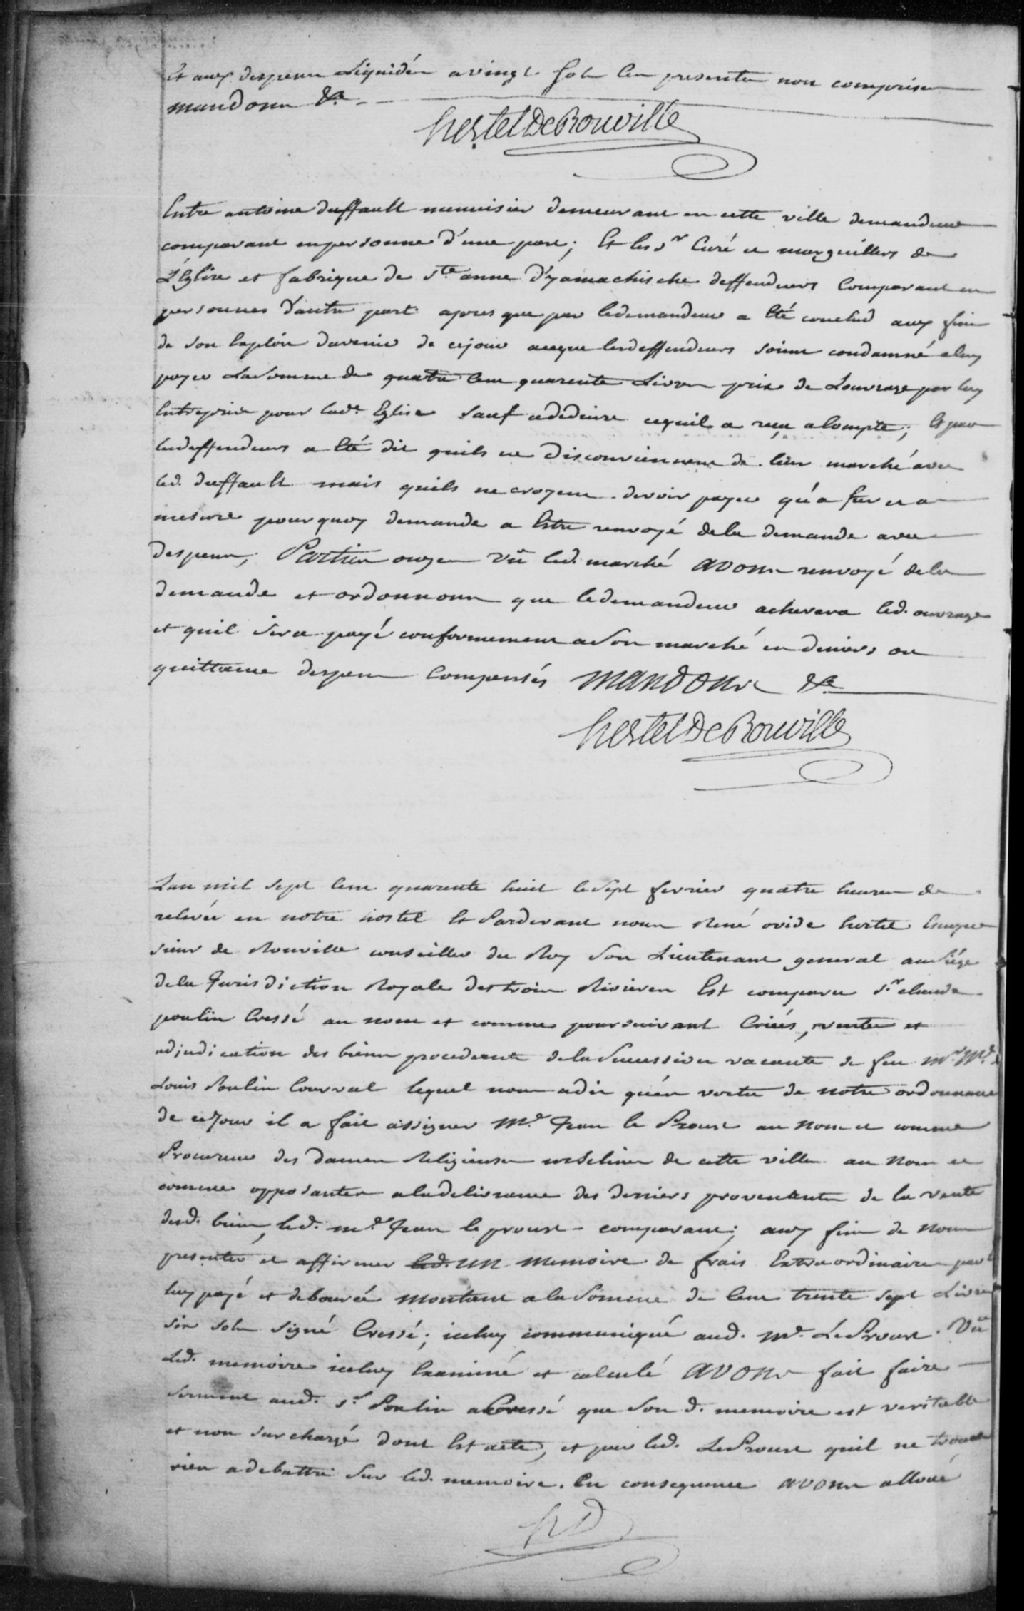 Et aux despens Liquidés a vingt sols Ces presentes non comprises
mandons &a
hertel De Rouville
Entre antoine duffault menuisier demeurant en cette ville demandeur
comparant en personne d'une part; Et les srs Curé et marguilliers de
L'Eglise et fabrique de ste anne d'yamachische deffendeurs Comparant en
personnes D'autre part apres que par le demandeur a Eté conclud aux fins
de son Exploit davenir de ce jour a ce que les deffendeurs soient condamné a luy
payer La Somme de quatre Cent quarente Livres prix de L'ouvrage par luy
Entrepris pour lade Eglise sauf a deduire ce quil a reçu a Compte; Et par
les deffendeurs a Eté dit quils ne Disconviennent de leur marché avec
led. duffault mais quils ne croyent devoir payer qu'a fur et a
mesure pourquoy demande a Estre renvoyé de la demande avec
despens; Parties ouyes vû led. marché avons renvoyé de la
demande et ordonnons que le demandeur achevera led. ouvrage
et quil sera payé conformement a Son marché en deniers ou
quittance despens Compensés mandons &a
hertel De Rouville
L'an mil sept Cent quarente huit le sept fevrier quatre heures de
relevée en notre hostel Et Pardevant nous René ovide hertel Ecuyer
sieur de Rouville conseiller du Roy Son Lieutenant general au siége
de la Jurisdiction Royale des trois Rivieres Est comparu sr claude
poulin Cressé au nom et comme poursuivant Criées, vente et
adjudication des biens procedents de la Succession vacante de feu
Louis Poulin Courval lequel nous a dit qu'en vertu de notre ordonnance
de ce Jour il a fait assigner Me Jean le Proust au nom et comme
Procureur des dames Religieuses urselines de cette ville au nom et
comme opposantes a la delivrance des deniers provenants de la vente
desd. biens, led. me Jean le proust comparant; aux fins de nous
presenter et affirmer un memoire de frais Extraordinaires par
luy payé et deboursé montant a la Somme de Cent trente sept Livres
six sols signé Cressé; iceluy communiqué aud. Me LeProust. Vû
Led. memoire iceluy Examiné et calculé avons fait faire
serment aud. sr Poulin Cressé que Son d. memoire est veritable
et non surchargé dont Est acte, et par led. LeProust quil ne trouve
rien a debattre Sur led. memoire. En consequence avons alloué
hD